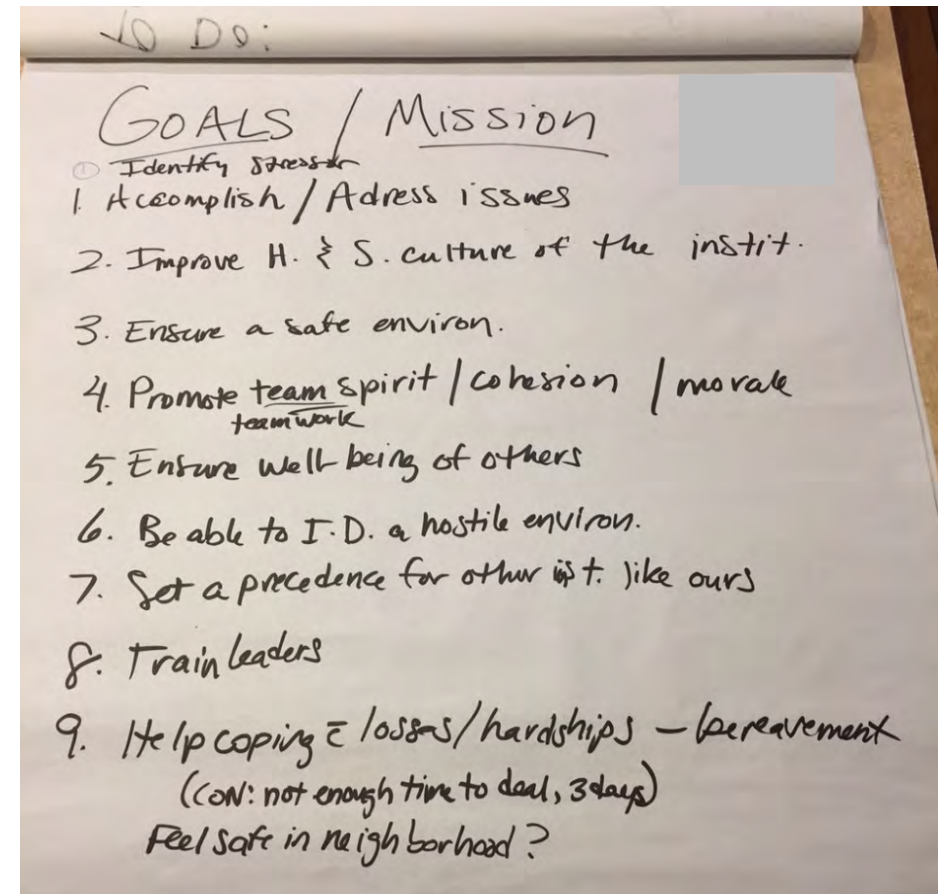 To Do:
GOALS / MISSION
① Identify stressor
1. Accomplish / Adress issues
2. Improve H. & S. culture of the instit.
3. Ensure a safe environ.
4. Promote team spirit / cohesion / morale
teamwork
5. Ensure well being of others
6. Be able to I.D. a hostile environ.
7. Set a precedence for other ist. like ours
8. Train leaders
9. Help coping c̄ losses/hardships – bereavement
(CON: not enough time to deal, 3 days)
Feel safe in neighborhood?